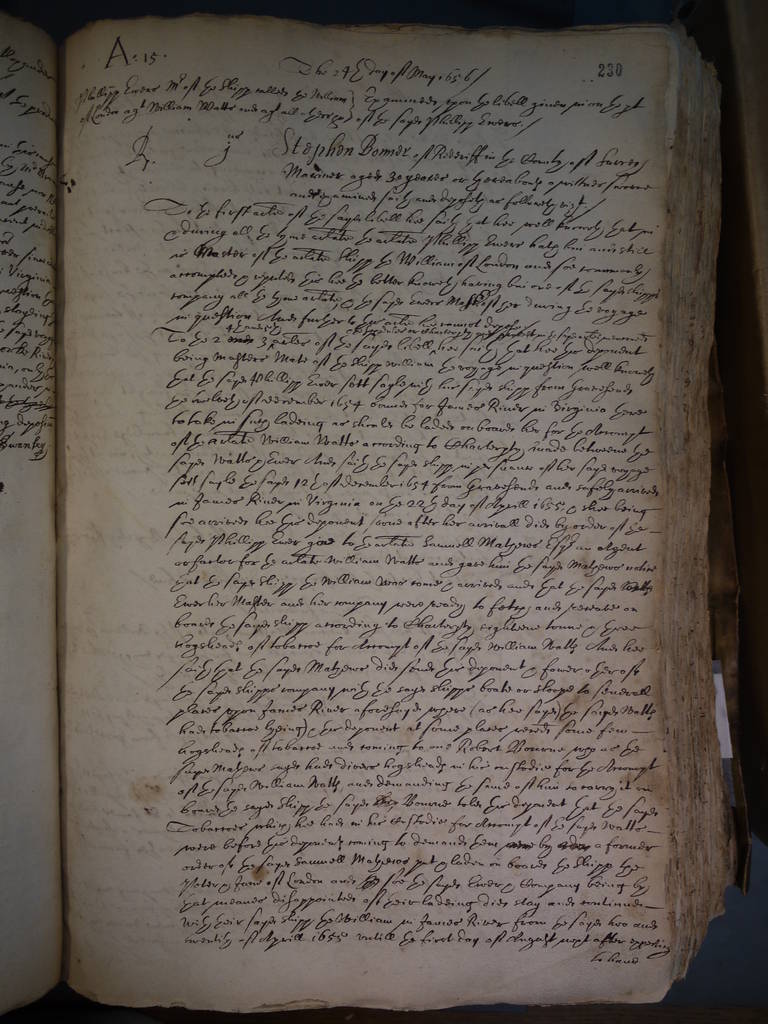 A. 15.
The 24th day of May 1656 /
230
Phillipp Ewers Mr of the shipp called the William } Examined upon the libell given in on the pt
of London agt William Watts and agt all others &c } of the sayd Phillipp Ewers. /
Rp.
jus
Stephen Bomer of Redriff in the County of Surrey
Mariner aged 30 yeares or thereabouts a wittnes sworne
and examined saith and deposeth as followeth vizt /
To the first article of the sayd libell hee saith that hee well knoweth that in
& during all the tyme arlate the arlate Phillipp Ewers hath bin and is still
Master of the arlate shipp the William of London and soe commonly
accompted & reputed this hee the better knoweth having bin one of the sayd shipps
company all the tyme arlate, & the sayd Ewers Master of her during the voyage
in question And further to this article hee cannot depose
To the 2 3 articles of the sayd libell hee saith that hee this deponent
being Masters Mate of the shipp William the voyage in question well knoweth
that the sayd Phillipp Ewer sett sayle with his sayd shipp from Gravesend
the twelveth of december 1654 bound for James River in Virginia there
to take in such ladeing as should be laden on board her for the Accompt
of the arlate William Watts according to Charterpty made betweene the
sayd Watts & Ewer And saith the sayd shipp in pursuance of her sayd voyage
sett sayle the sayd 12th of december 1654 from Gravesend and safely arrived
in James River in Virginia on the 22th day of Aprill 1655, & shee being
soe arrived hee this deponent soone after her arrivall did by order of the
sayd Phillipp Ewer goe to the arlate Samuell Mathews Esqr an Agent
or factor for the arlate William Watts and gave him the sayd Mathews notice
that the sayd shipp the William was come & arrived and that the sayd
Ewer her Master and her company were ready to fetch and receave on
board the sayd shipp according to Charterpty eighteene tonne & three
hogsheads of tobaccoe for Accompt of the sayd William Watts And hee
saith that the sayd Mathews did send this deponent & fower others of
the sayd shipps company with the sayd shipps boate or sloope to severall
places upon James River aforesayd where (as hee sayd) the sayd Watts
had tobaccoe lyeing, & this deponent at some places recd some few
hogsheads of tobaccoe and coming to one Robert Bourne whoe as the
sayd Mathews sayd had divers hogsheads in his custodie for the Accompt
of the sayd William Watts, and demanding the same of him to carry it on
board the sayd shipp the sayd Bourne told this deponent that the sayd
Tobaccoes which hee had in his custodie for Accompt of the sayd Watts
were before this deponents coming to demand them by a former
order of the sayd Samuell Mathews put & laden on board the shipp the
Peter & Jane of London and soe the sayd Ewer & Company being by
that meanes disappointed of their ladeing did stay and continue
with their sayd shipp the William in James River from the sayd two and
twentith of Aprill 1655 untill the first day of August next after expecting
to have